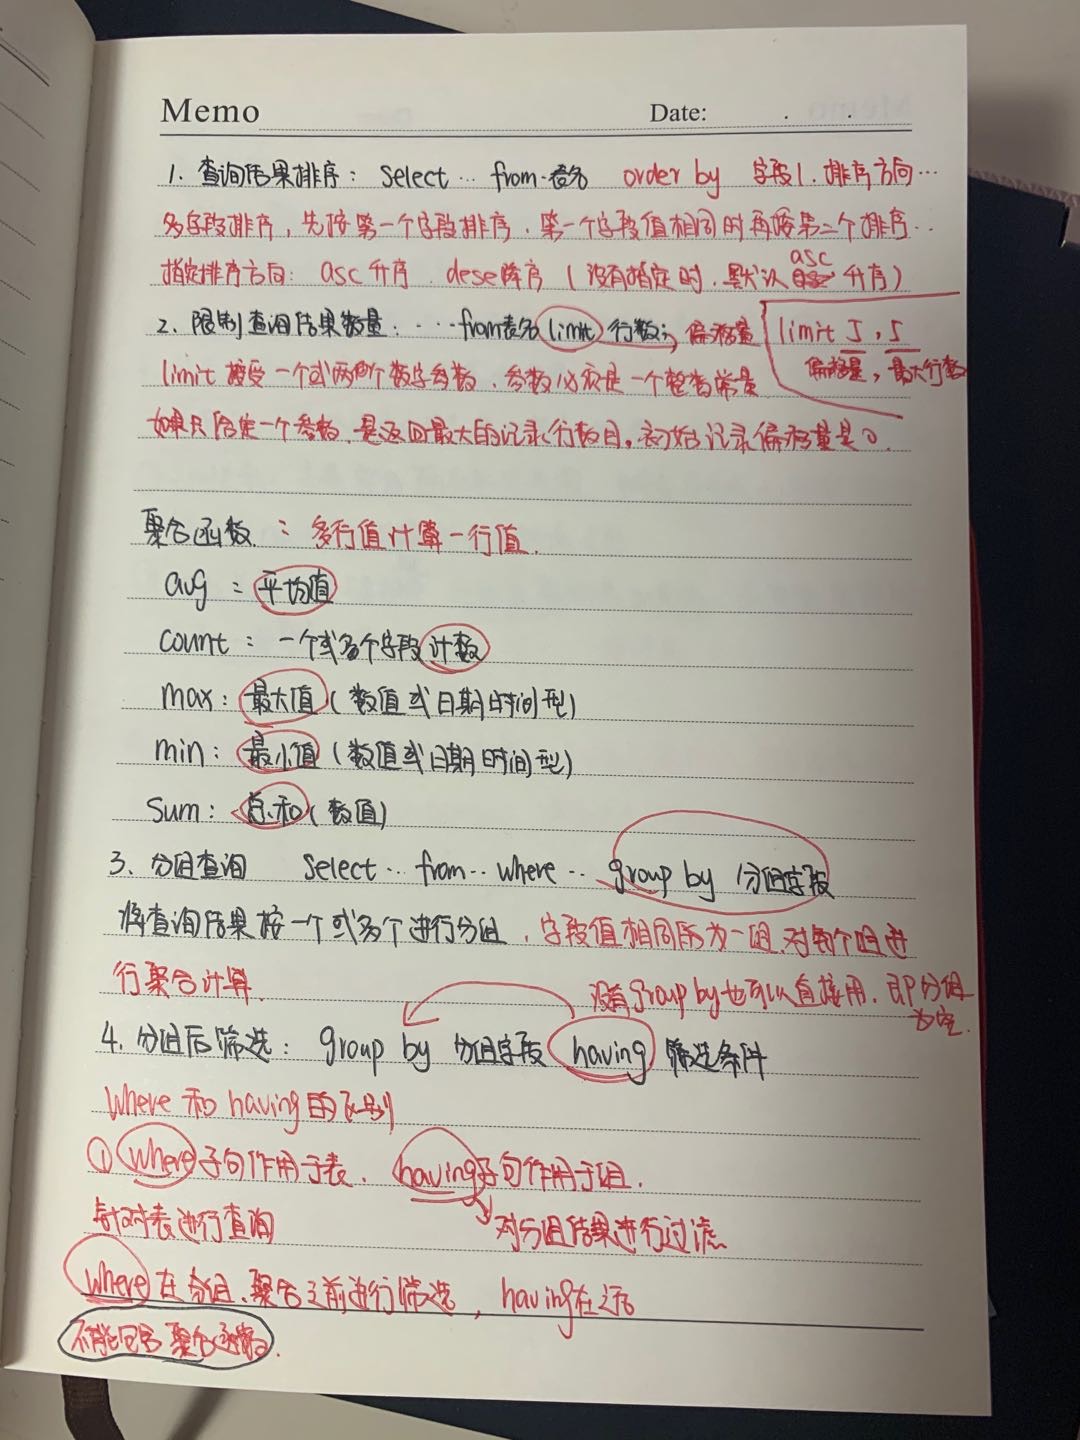 Memo Date: . .
1. 查询结果排序: select … from 表名 order by 字段1. 排序方向…
多字段排序, 先按第一个字段排序. 第一个字段值相同时再按第二个排序..
指定排序方向: asc 升序 dese降序 (没有指定时. 默认 asc 升序)
2. 限制查询结果数量: …from表名 limit 行数; 偏移量
limit 5, 5
偏移量, 最大行数
limit 接受一个或两个数字参数. 参数必须是一个整数常量
如果只给定一个参数. 是返回最大的记录行数目。初始记录偏移量是0.
聚合函数. : 多行值计算一行值.
avg : 平均值
count : 一个或多个字段计数
max: 最大值 (数值或日期时间型)
min: 最小值 (数值或日期时间型)
sum: 总和 (数值)
3. 分组查询 select … from .. where .. group by 分组字段
将查询结果按一个或多个进行分组, 字段值相同所为一组. 对每个组进
行聚合计算.
没有group by也可以直接用. 即分组
为空.
4. 分组后筛选: group by 分组字段 having 筛选条件
where 和 having 的区别
① where子句作用于表. having子句作用于组.
针对表进行查询 对分组结果进行过滤
where 在分组、聚合之前进行筛选, having在之后
不能包含聚合函数.